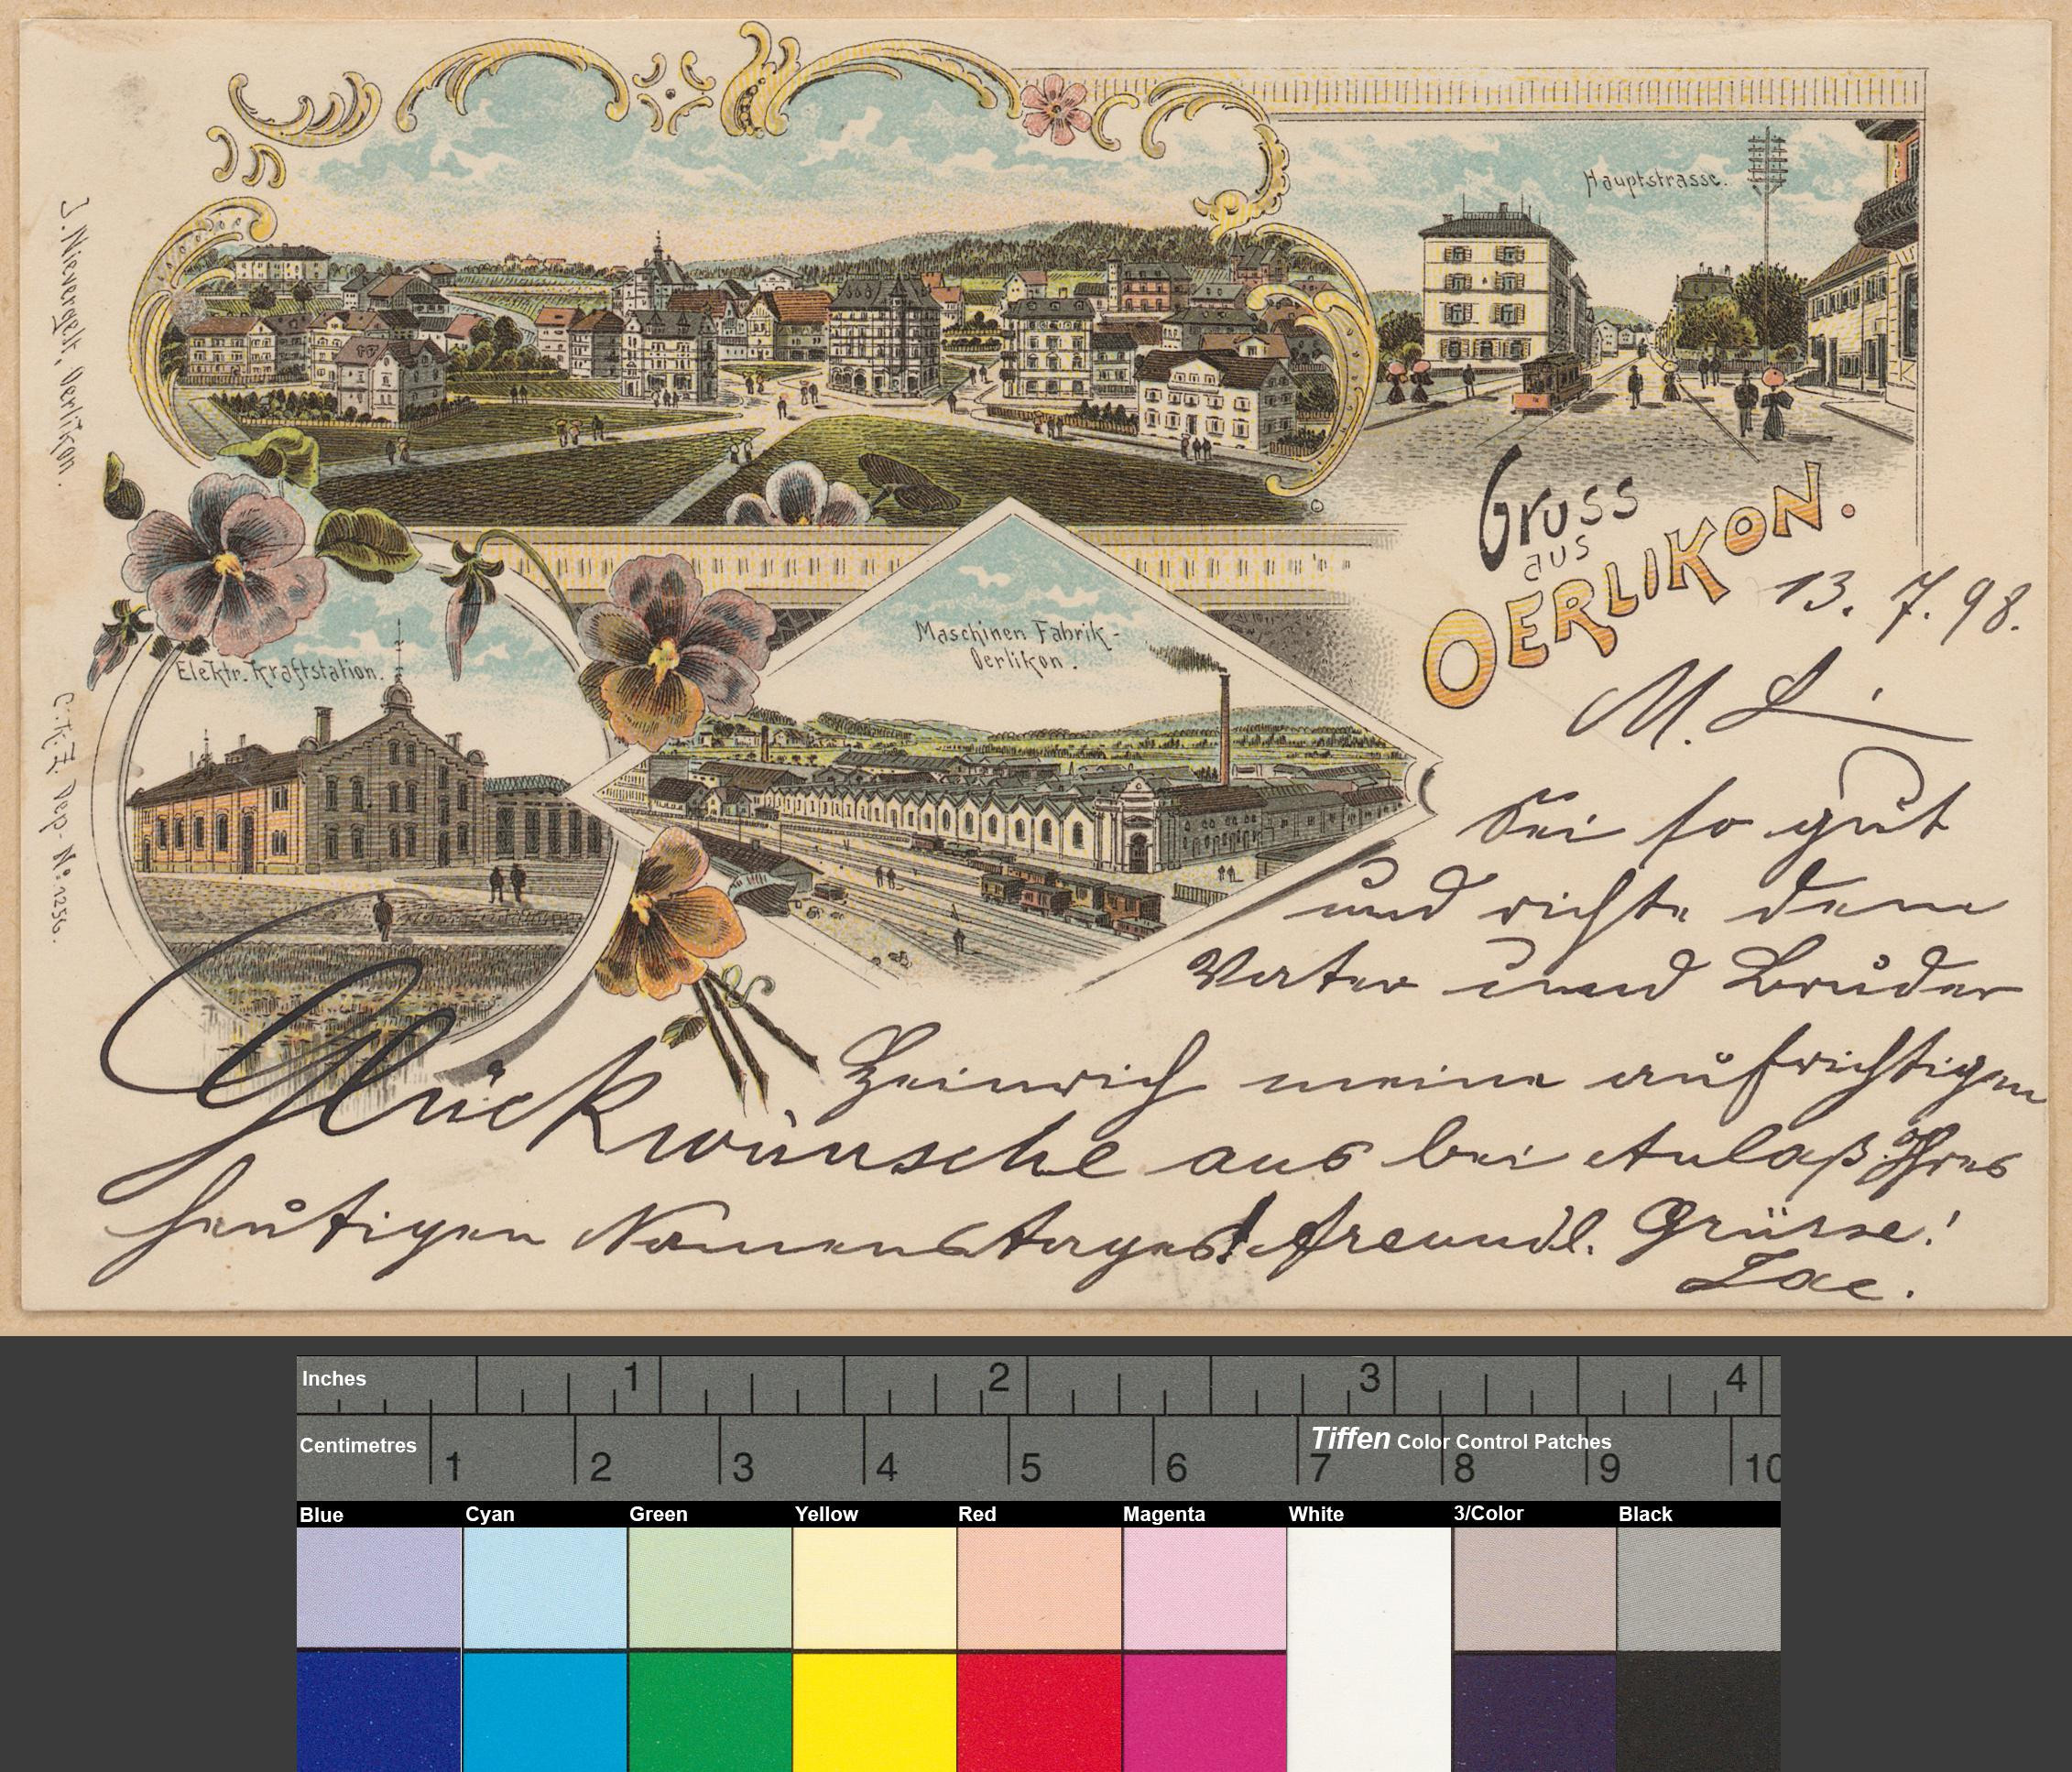 J. Nievergelt, Oerlikon.
C. K. Z. Dep. No. 1256.
Hauptstrasse.
Gruss
aus
OERLIKON.
Elektr. Kraftstation.
Maschinen Fabrik-
Oerlikon.
13. 7. 98.
M. L.
Sei so gut
und richte dem
Vater und Bruder
Heinrich meine aufrichtigen
Glückwünsche aus bei Anlaß Ihres
heutigen Namenstages! freundl. Grüsse!
Jac.
Inches
1 2 3 4
Centimetres
Tiffen Color Control Patches
1 2 3 4 5 6 7 8 9 10
Blue Cyan Green Yellow Red Magenta White 3/Color Black